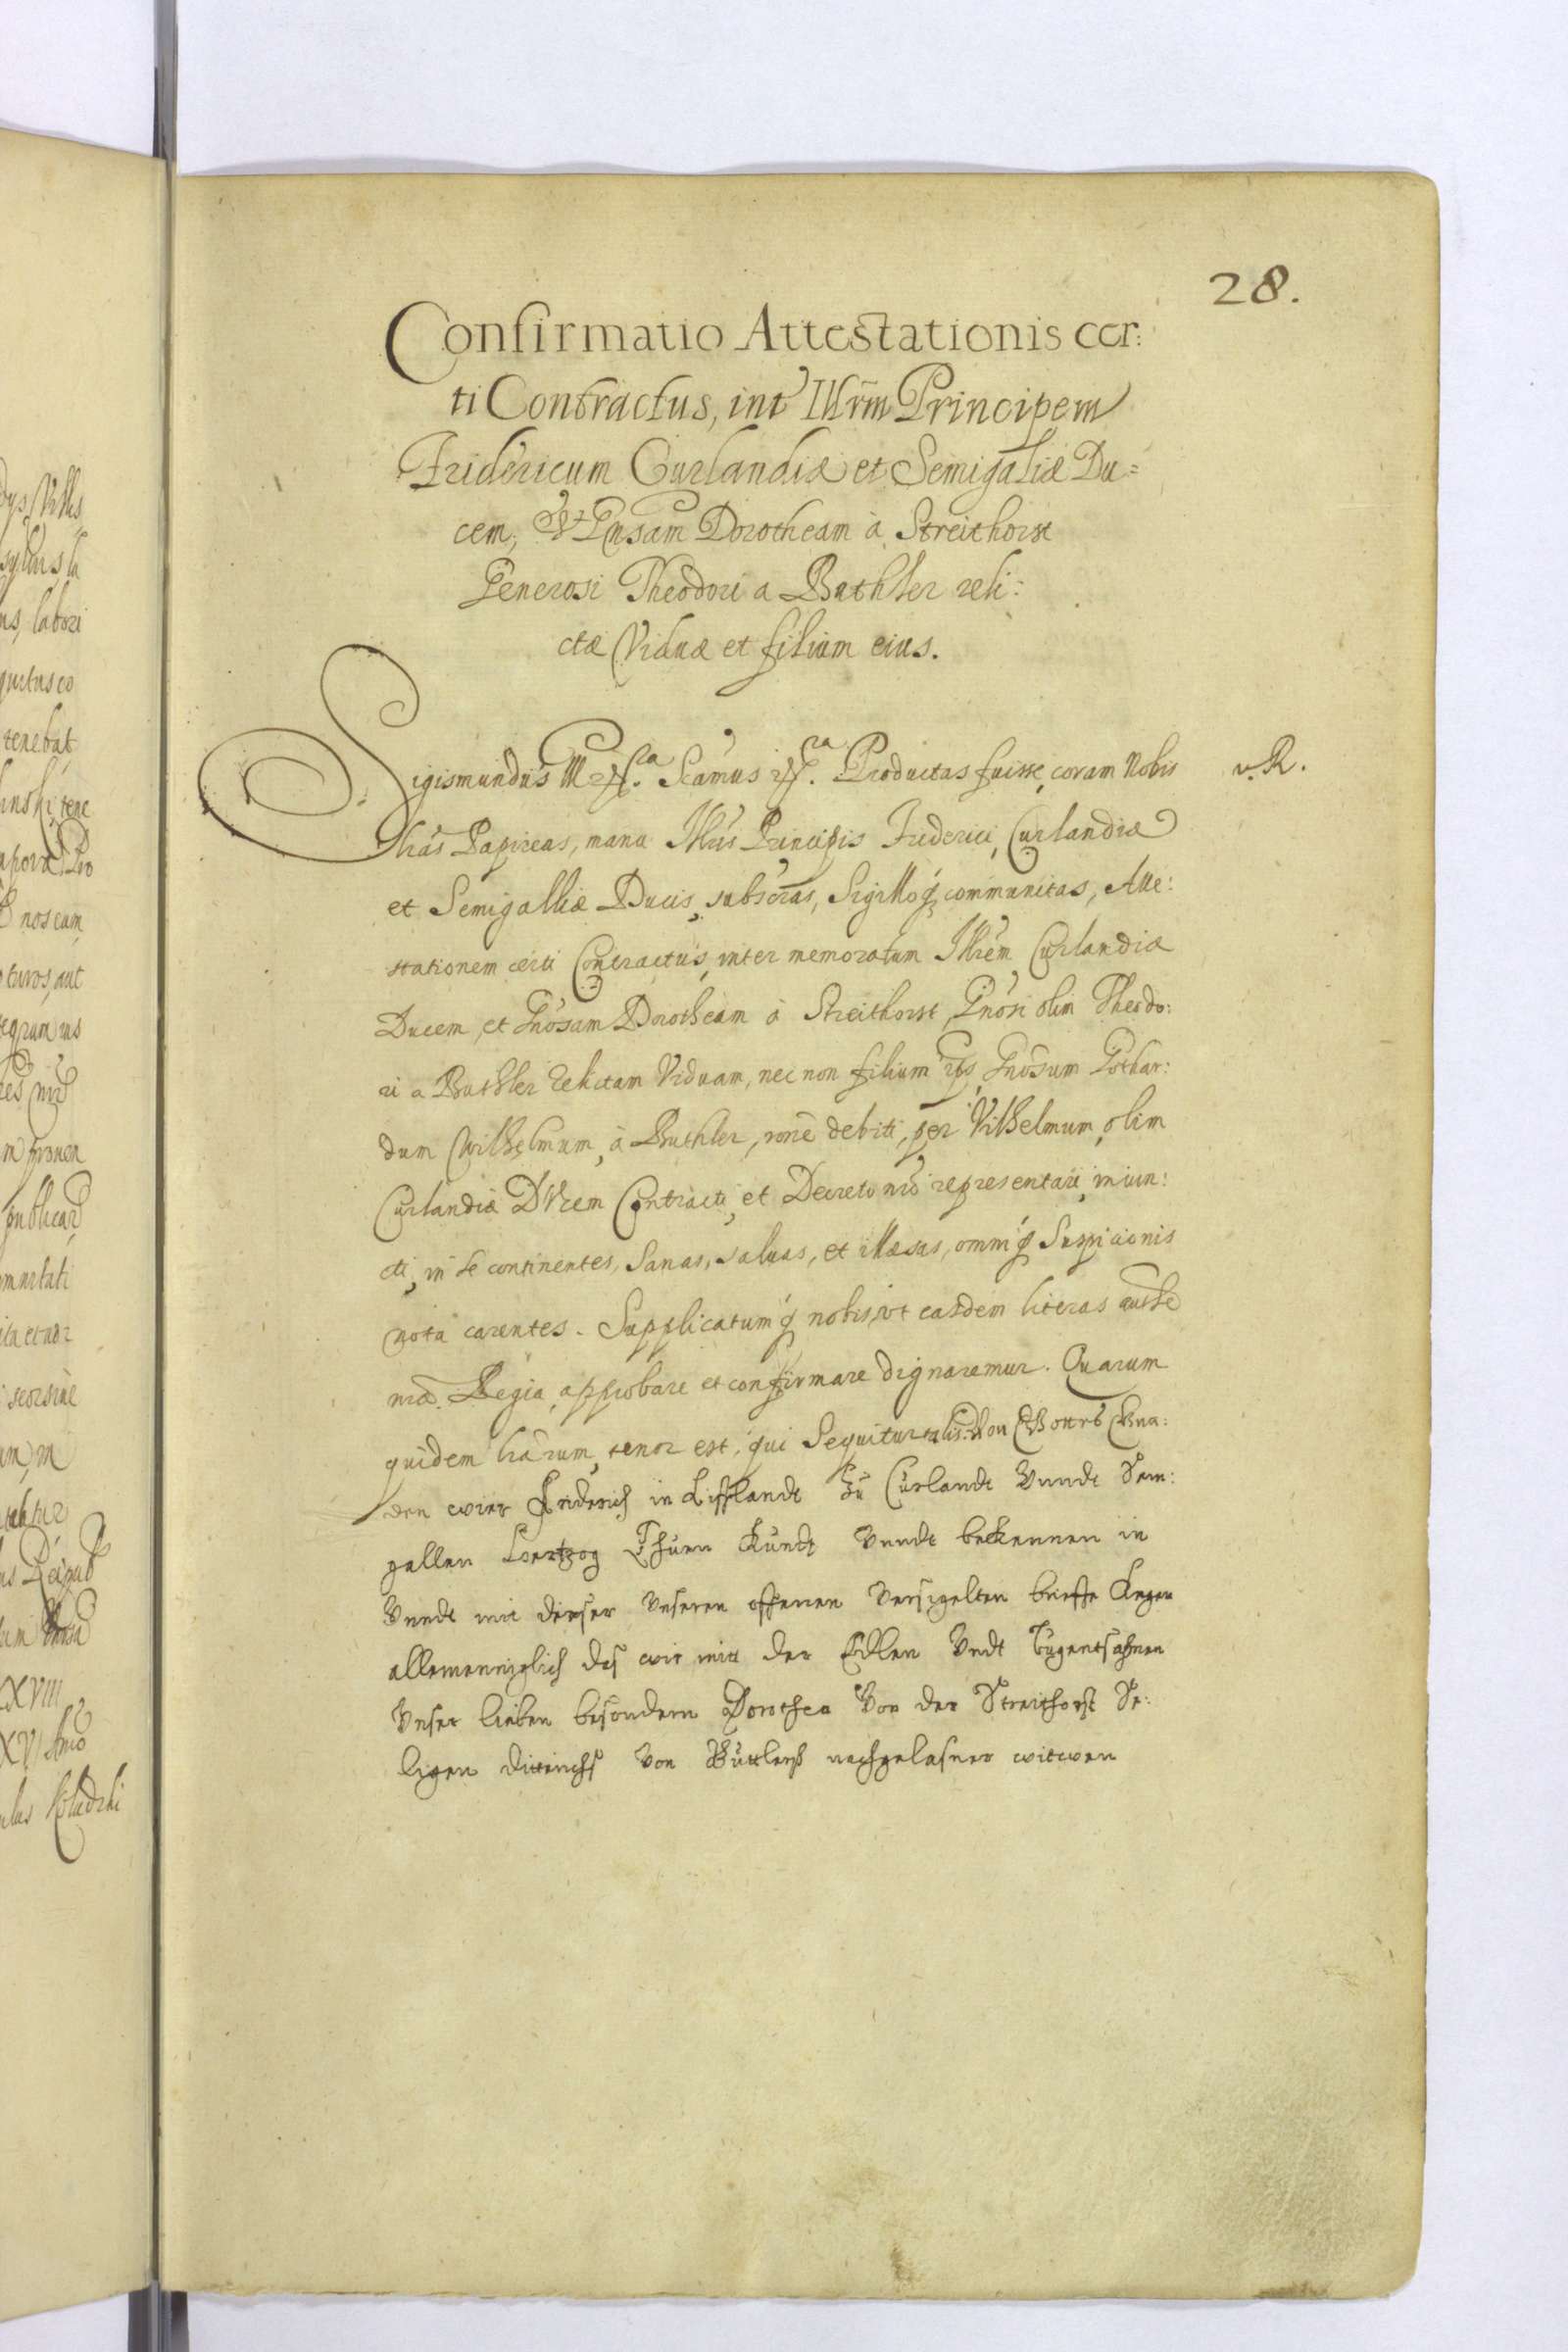 28.
Confirmatio Attestationis cer:
ti Contractus, int Illrm Principem
Fridericum Curlandiæ et Semigaliæ Du=
cem, et Gnsam Dorotheam à Streithorst
Generosi Theodori a Buthler reli:
ctæ Viduæ et filium eius.
Sigismundus III etc. Scamus etc. Productas fuisse, coram Nobis
v. R.
lras Papireas, manu Illris Principis Friderici, Curlandiæ
et Semigalliæ Ducis, subscras, Sigilloq communitas, Atte:
stationem certi Contractus, inter memoratum Illrem Curlandiæ
Ducem, et Gnosam Dorotheam à Streithorst, Gnosi olim Theodo:
ri a Buthler relictam Viduam, nec non filium eius, Gnosum Gothar:
dum Wilhelmum, à Buthler, rone debiti, per Vilhelmum, olim
Curlandiæ DVcem Contracti, et Decreto nro representari, iniun:
cti, in se continentes, Sanas, saluas, et illæsas, omniq Suspicionis
nota carentes. Supplicatumq nobis, vt easdem literas authe
nra Regia, approbare et confirmare dignaremur. Quarum
quidem lrarum, tenor est, qui Sequitur talis. Von Gotts Gna:
den wier Friderich in Liffländt Zu Curlandt Vnndt Sem:
gallen Hertzog Thuen Kundt Vnndt bekennen in
Vnndt mit dieser Vnseren offenen Versigelten brieffe Kegen
allermenniglich das wir mitt der Edlen Vndt Tugentsahmen
Vnser lieben besondern Dorothea Von der Streithorst Se:
ligen Dittrichs Von Buttlers nachgelasner witwen